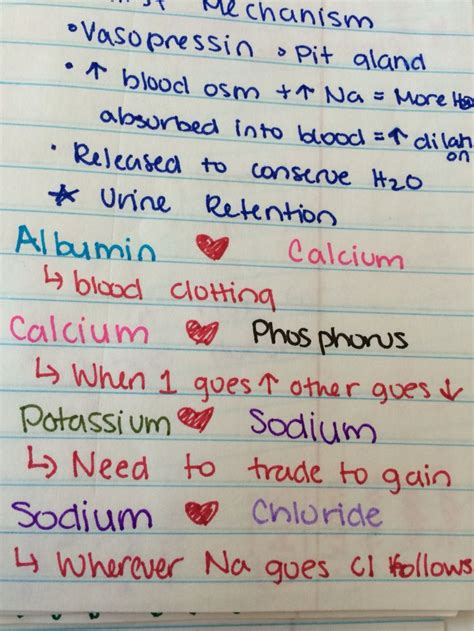 Mechanism
• Vasopressin → Pit gland
• ↑ blood osm + ↑ Na = More H2O
absorbed into blood = ↑ dilati
on
• Released to conserve H2O
☆ Urine Retention
Albumin ♥ Calcium
↳ blood clotting
Calcium ♥ Phosphorus
↳ When 1 goes ↑ other goes ↓
Potassium ♥ Sodium
↳ Need to trade to gain
Sodium ♥ Chloride
↳ Wherever Na goes Cl follows